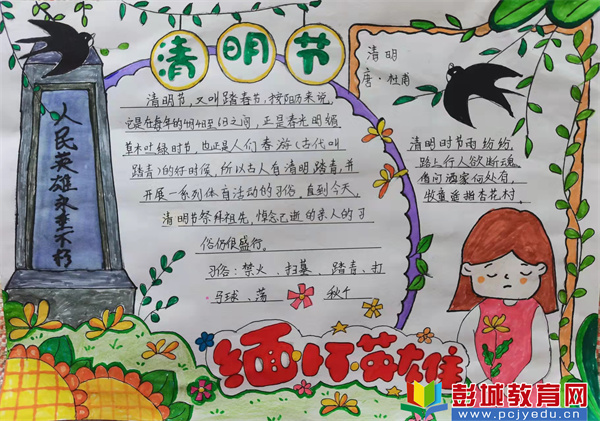 清明节
人民英雄永垂不朽
清明节,又叫踏春节,按阳历来说,
它是在每年的4月4日至6日之间,正是春光明媚
草木吐绿时节,也正是人们春游(古代叫
踏青)的好时候,所以古人有清明踏青,并
开展一系列体育活动的习俗。直到今天,
清明节祭拜祖先,悼念已逝的亲人的习
俗仍很盛行。
习俗:禁火、扫墓、踏青、打
马球、荡 秋千
清明
唐·杜甫
清明时节雨纷纷,
路上行人欲断魂。
借问酒家何处有,
牧童遥指杏花村.
缅怀英雄
彭城教育网
www.pcjyedu.cn